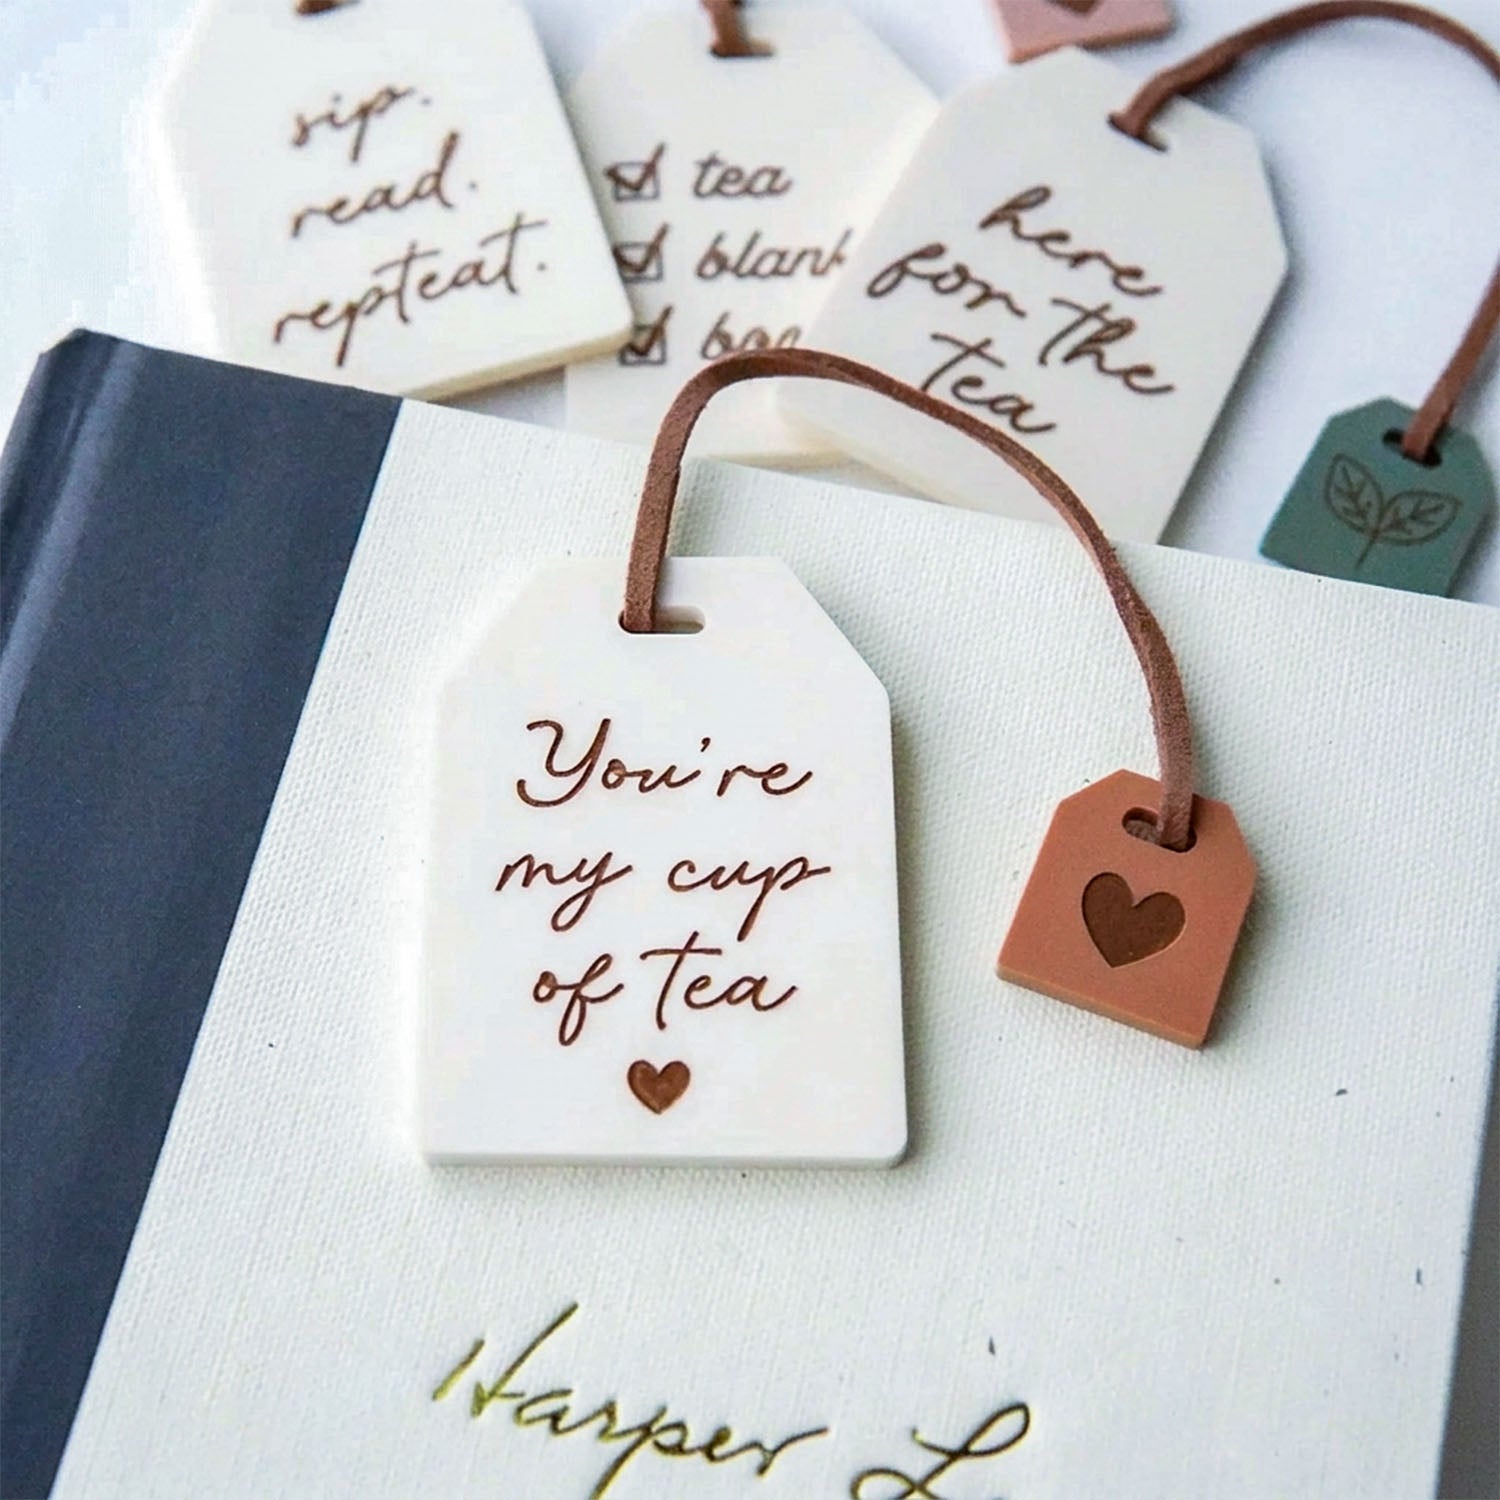 sip.
read.
repteat.
tea
blank
here
for the
tea
You're
my cup
of tea
Harper L